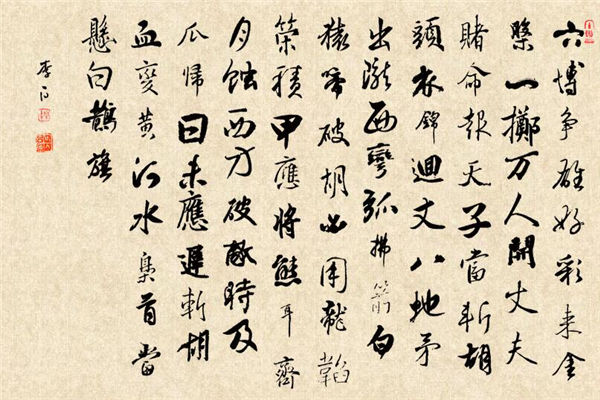 六博争雄好彩来金
槃一擲万人開丈夫
賭命報天子當斬胡
頭衣錦迴丈八虵矛
出隴西彎弧拂箭白
猿啼破胡必用龍韜
策積甲應将熊耳齊
月蝕西方破敵時及
瓜歸日未應遲斬胡
血變黄河水梟首當
懸白鵲旗
李白